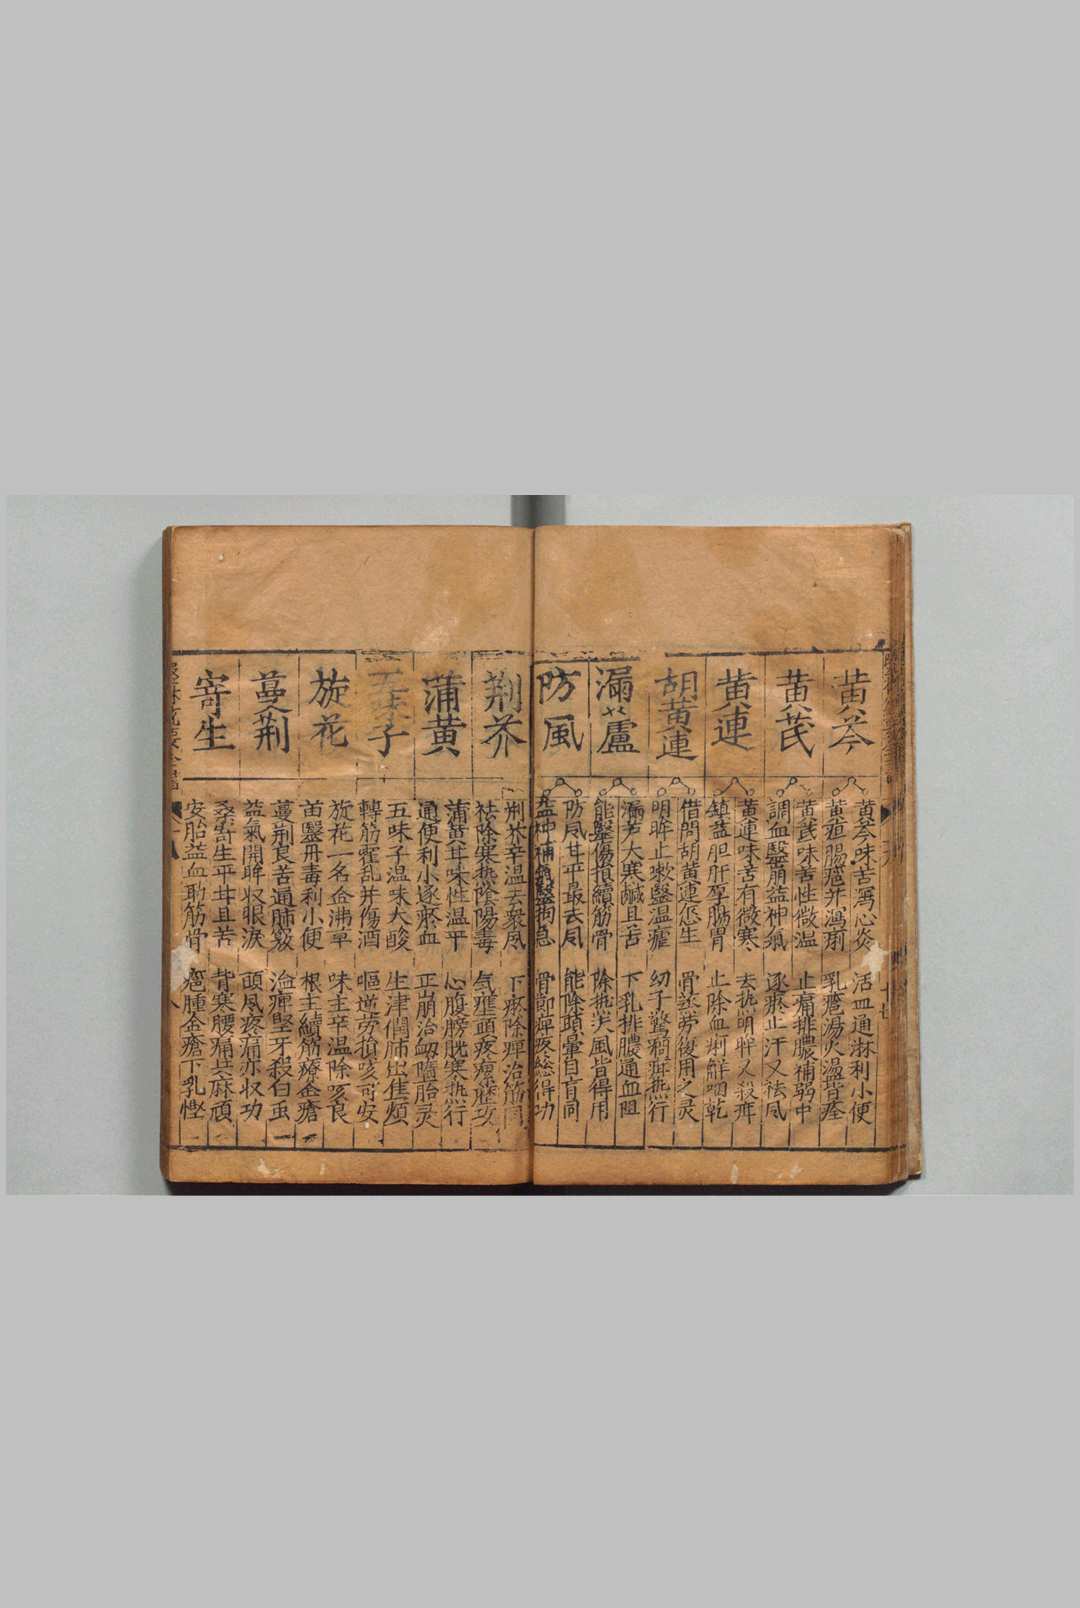 黄芩
黄芩味苦瀉心炎　活血通淋利小便
黄疸腸癰并瀉痢　乳癰湯火溫皆痊
黄芪
黄芪味苦性微温　止痛排膿補弱中
調血毉崩益神氣　逐瘀止汗又祛风
黄連
黄連味苦有微寒　去热明眸又殺疳
鎮益胆肝厚肠胃　止除血痢鮮咽乾
胡黄連
借問胡黄連怎生　骨蒸劳復用之灵
明眸止嗽毉温瘧　幼子驚癇疳热行
漏蘆
漏芦大寒鹹且苦　下乳排膿通血阻
能毉傷損續筋骨　除热泆風皆得用
防風
防风甘平最去风　能除頭暈目盲同
益神補氣毉拘急　骨節痺疼総得功
荆芥
荆芥辛温去衆风　下瘀除痺治筋同
祛除寒热陰陽毒　气壅頭疼瘰癧攻
蒲黄
蒲黄甘味性温平　心腹膀胱寒热行
通便利小逐瘀血　正崩治衂墮胎灵
五味子
五味子温味大酸　生津潤肺坎焦煩
轉筋霍乱并傷酒　嘔逆劳損咳可安
旋花
旋花一名金沸草　味主辛温除咳良
苗毉丹毒利小便　根主續筋療金瘡
蔓荆
蔓荆良苦通肺竅　治痺堅牙殺白虫
益氣開眸収眼淚　頭风疼痛亦収功
寄生
桑寄生平甘且苦　背寒腰痛共麻頑
安胎益血助筋骨　癰腫金瘡下乳慳